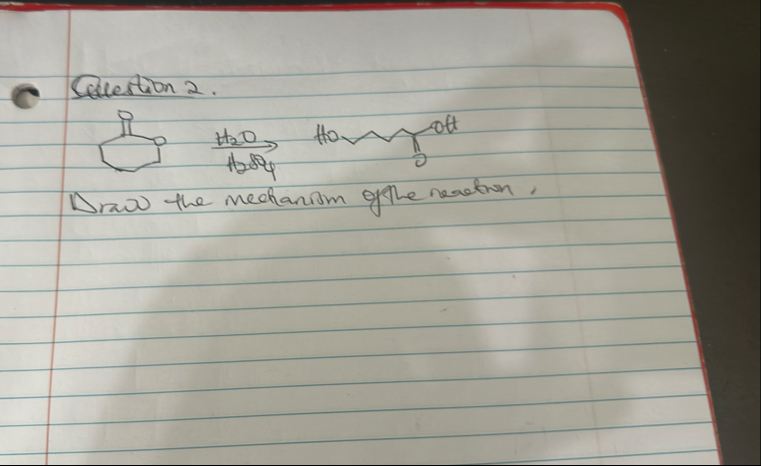 Question 2.
O
O H2O HO OH
H2SO4 O
Draw the mechanism of the reaction.